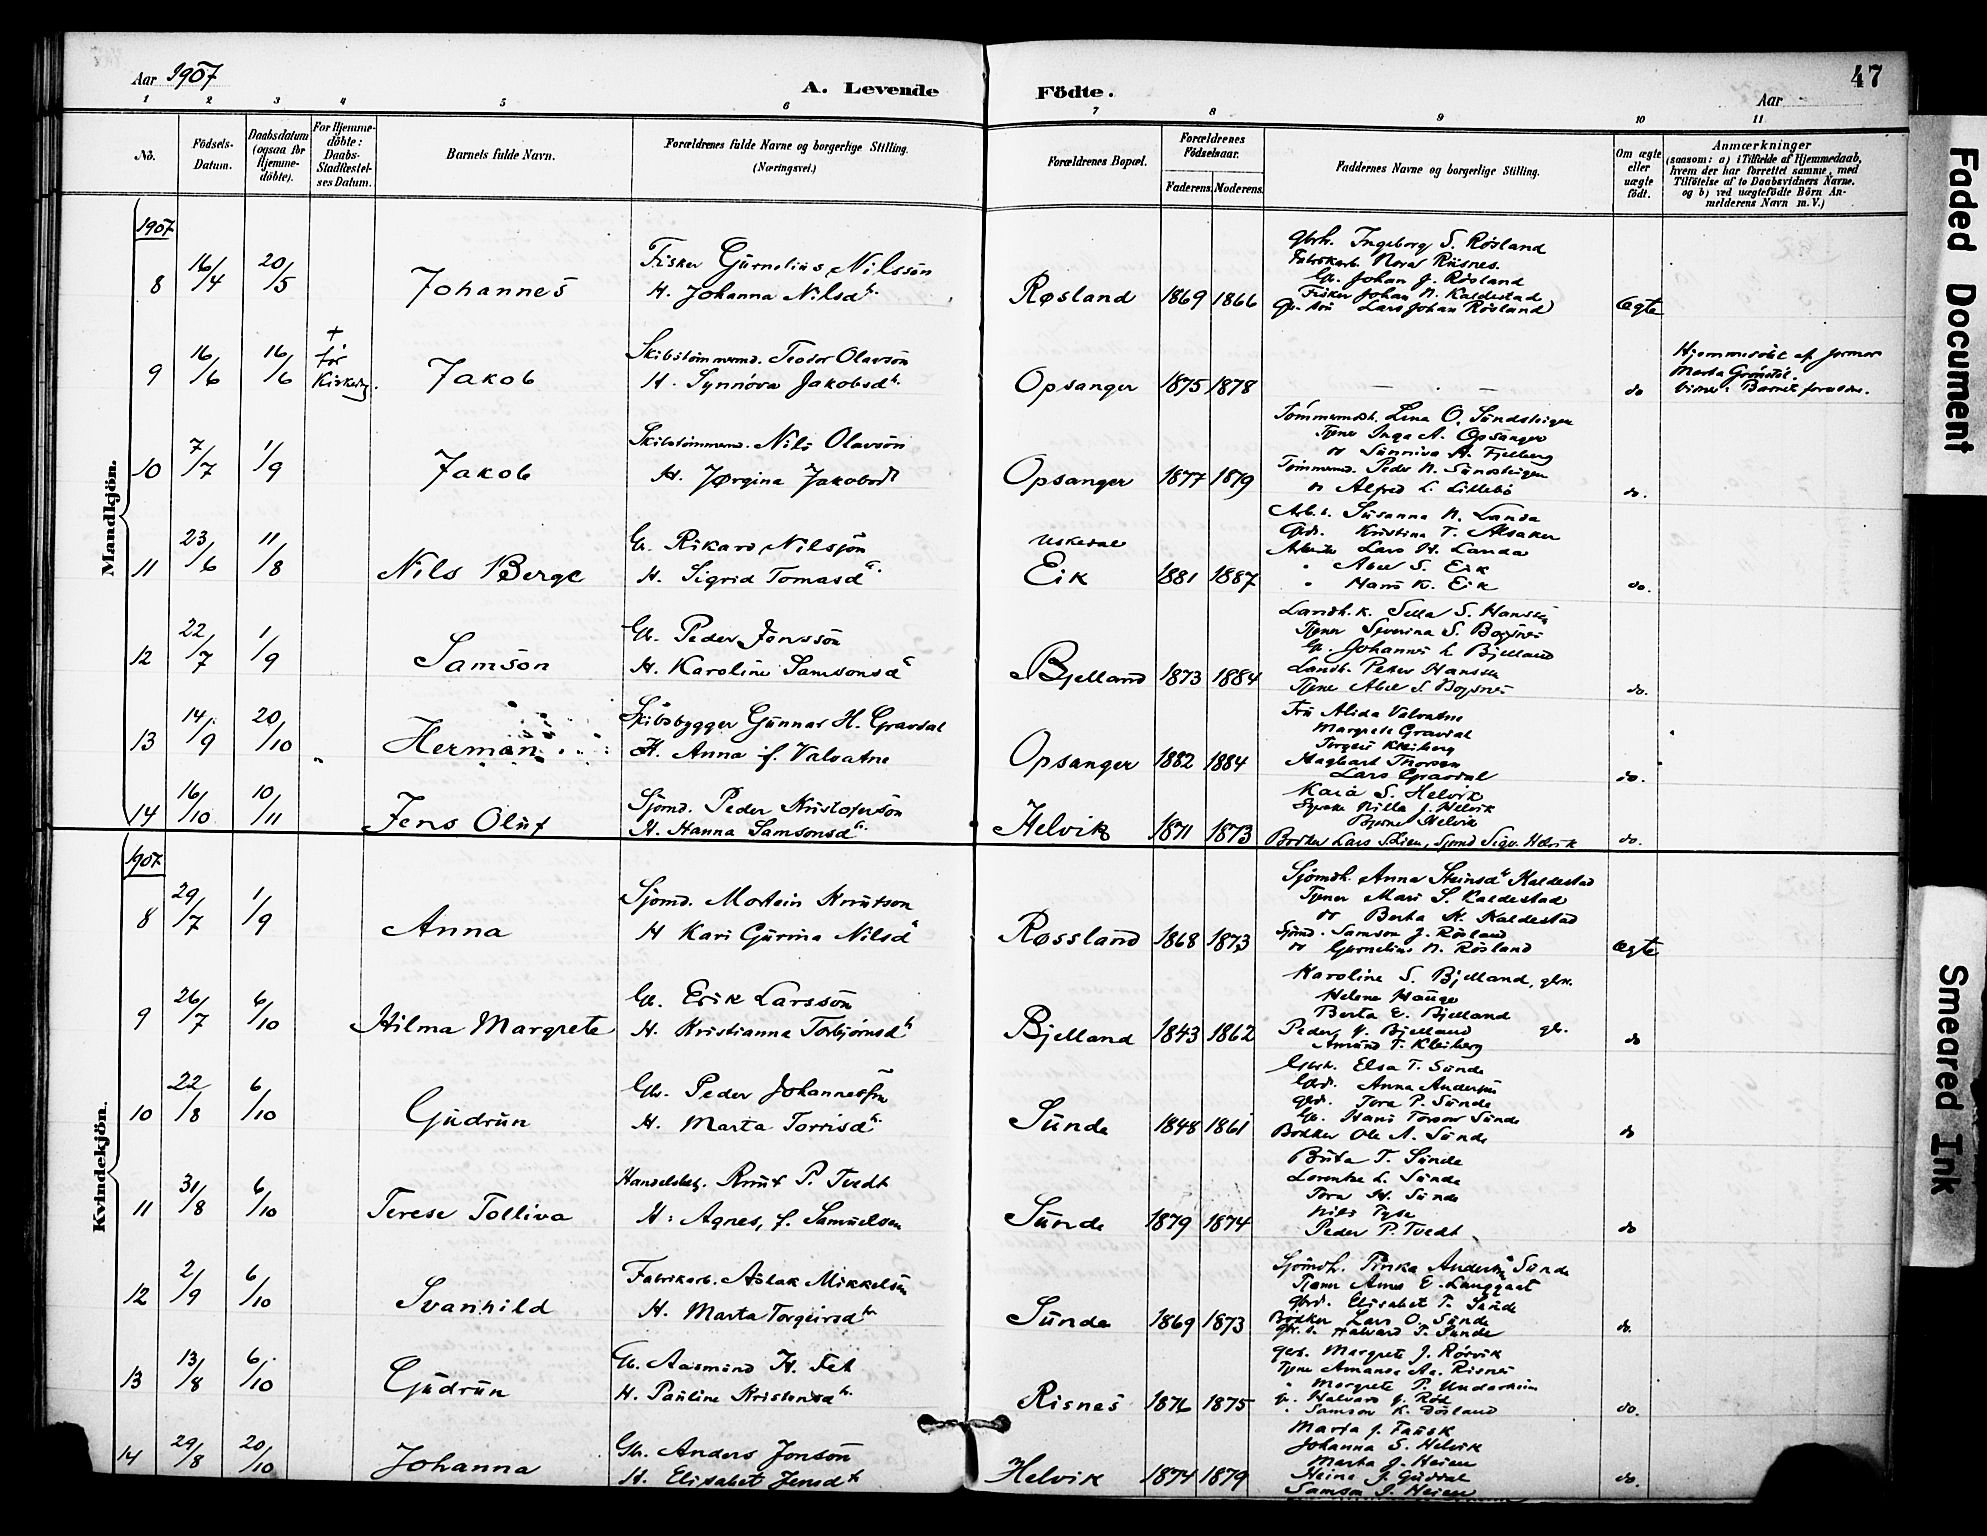 Aar 1907
A. Levende
Födte.
Aar
47
1 2 3 4 5 6 7 8 9 10 11
No.
Födsels-Datum.
Daabsdatum (ogsaa for Hjemme-döbte).
For Hjemme-döbte: Daabs-Stadfæstel-ses Datum.
Barnets fulde Navn.
Forældrenes fulde Navne og borgerlige Stilling. (Næringsvei.)
Forældrenes Bopæl.
Forældrenes Födselsaar.
Faderens. Moderens.
Faddernes Navne og borgerlige Stilling.
Om ægte eller uægte födt.
Anmærkninger
(saasom: a) i Tilfælde af Hjemmedaab, hvem der har forrettet samme, med Tilföielse af to Daabsvidners Navne. og b) ved uægtefödte Börn An-melderens Navn m. V.)
Mandkjön.
1907
8 16/4 20/5 Johannes
Fisker Gurnelius Nilsson
H. Johanna Nilsdtr.
Røsland 1869 1866
Gbrh. Ingeborg S. Røsland
Fabrikarb. Nora Risnes.
Gb. Johan J. Røsland
Fisker Johan N. Kaldestad
Gb. søn Lars Johan Røsland
Ægte
9 16/6 16/6 + før Kirkebg. Jakob
Skibstømmermd. Teodor Olavson
H. Synnøva Jakobsdtr.
Opsanger 1875 1878
— — —
do
Hjemmedøbt af jormor
Marta Grønstøl.
Vidner: Barnets forældre.
10 7/7 1/9 Jakob
Skibstømmermd. Nils Olavson
H. Jørgina Jakobsdt
Opsanger 1877 1879
Tømmermdsh. Lina O. Sundsteigen
Tjener Inga A. Opsanger
do Sunniva A. Fjelberg
Tømmermd. Peder N. Sundsteigen
do Alfred L. Lillebø
do.
11 23/6 11/8 Nils Berge
Gb. Rikard Nilssøn
H. Sigrid Tomasdtr.
Uskedal
Eik 1881 1887
Arb.h. Susanna N. Landa
Gbrd. Kristina T. Alsaker
Arbeider Lars H. Landa
" Abel S. Eik
" Hans K. Eik
do.
12 22/7 1/9 Samson
Gb. Peder Jonsson
H. Karoline Samsonsd
Bjelland 1873 1884
Landh.k. Sella S. Hanssen
Tjener Severina S. Bogsnes
Gb. Johannes L. Bjelland
Landh. Peter Hanssen
Tjene Abel S. Bogsnes
do.
13 14/9 20/10 Herman
Skibsbygger Gunnar H. Gravdal
H. Anna f. Valvatne
Opsanger 1882 1884
Fru Alida Valvatne
Margrete Gravdal
Torgeir Kleiberg
Hagbart Thorsen
Lars Gravdal
do.
14 16/10 10/11 Jens Oluf
Sjømd. Peder Kristoferson
H. Hanna Samsonsdtr.
Helvik 1871 1873
Kaia S. Helvik
Nilla J. Helvik
Bjarne Helvik
Bødker Lars S. Lien, Sjømd Sigv. Helvik
do.
Kvindekjön.
1907
8 29/7 1/9 Anna
Sjømd. Mortein Knutson
H Kari Gurina Nilsd
Røssland 1868 1873
Sjømdh. Anna Steinsdtr Kaldestad
Tjener Mari S. Kaldestad
do Berta K. Kaldestad
Sjømd. Samson J. Røsland
do Gurnelius N. Røsland
Ægte
9 26/7 6/10 Hilma Margrete
Gb. Erik Larsson
H. Kristianna Torbjørnsdtr
Bjelland 1843 1862
Karoline S. Bjelland, gbk.
Helene Hauge
Berta E. Bjelland
Peder J. Bjelland gb.
Amund T. Kleiberg
do
10 22/8 6/10 Gudrun
Gb. Peder Johannessøn
H. Marta Torrisdtr.
Sunde 1848 1861
Gbrh. Elsa T. Sunde
Gbrd. Anna Andersen
Gbrd. Tora P. Sunde
Gb. Hans Torson Sunde
Bødker Ole A. Sunde
do
11 31/8 6/10 Terese Tolliva
Handelsbetj. Knut P. Tvedt
H: Agnes, f. Samuelsen
Sunde 1879 1874
Brita T. Sunde
Lorentze L. Sunde
Tora H. Sunde
Nils Tyse
Peder P. Tvedt
do
12 2/9 6/10 Svanhild
Fabrikarb. Aslak Mikkelsen
H. Marta Torgeirsdtr
Sunde 1869 1873
Sjømdh. Pinka Andersen Sunde
Tjener Anna E. Langgaat
Gbrd. Elisabet T. Sunde
Bødker Lars O. Sunde
Gb.s. Halvard T. Sunde
do.
13 13/8 6/10 Gudrun
Gb. Aasmund H. Fet
H. Pauline Kristensdtr.
Risnes 1876 1875
Gbrh. Margrete J. Rørvik
Tjene Amanda Aa. Risnes
Margrete P. Undarheim
gb. Halvard J. Røst
" Samson K. Døsland
do.
14 29/8 20/10 Johanna
Gb. Anders Jonson
H. Elisabet Jensdtr
Helvik 1874 1879
Marta J. Fausk
Johanna S. Helvik
Marta J. Heien
Heine J. Guddal
Samson J. Heien
do.
Faded Document
Smeared Ink